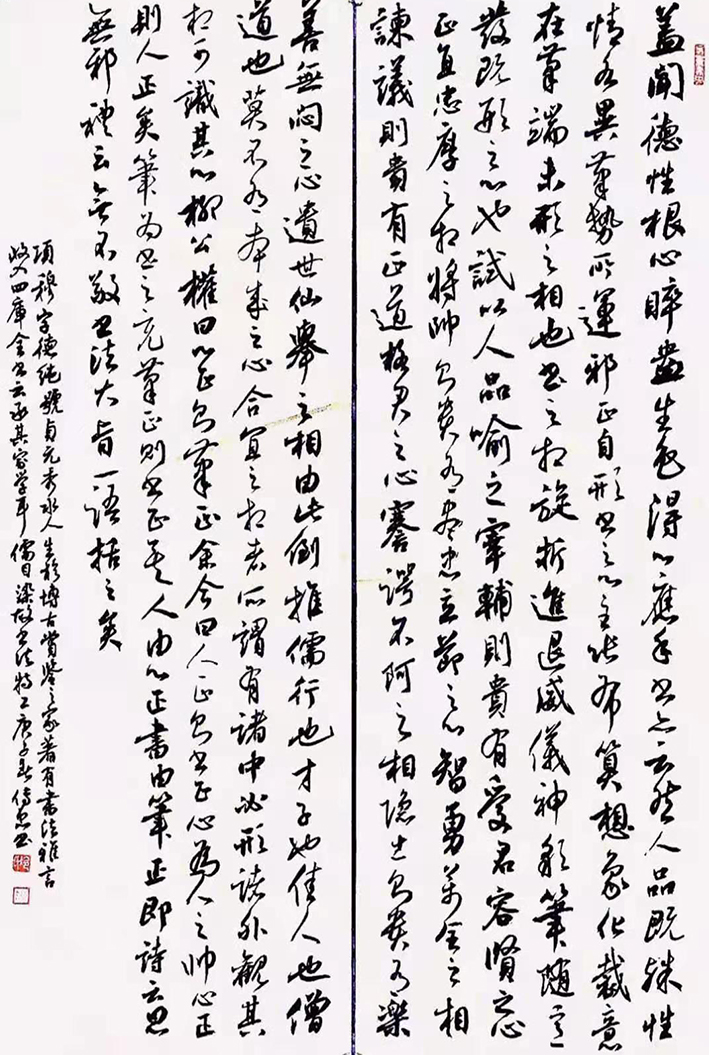 蓋聞德性根心睟盎生色得心應手書亦云然人品既殊性
情各異筆勢所運邪正自形書之心主張布算想象化裁意
在筆端未形之相也書之相旋折進退威儀神彩筆隨意
發既形之心也試以人品喻之宰輔則貴有愛君容賢之心
正直忠厚之相將帥則貴有盡忠立節之心智勇萬全之相
諫議則貴有正道格君之心謇諤不阿之相隱士則貴有樂
善無悶之心遺世仙舉之相由此例推儒行也才子也佳人也僧
道也莫不各有本來之心合宜之相者所謂有諸中必形諸外觀其
相可識其心柳公權曰心正則筆正余今曰人正則書正心為人之帥心正
則人正矣筆為書之充筆正則書正矣人由心正書由筆正即詩云思
無邪禮云無不敬書法大旨一語括之矣
項穆字德純號貞元秀水人生於博古賞鑒之家著有書法雅言
收入四庫全書云承其家學耳濡目染故書法特工庚子春